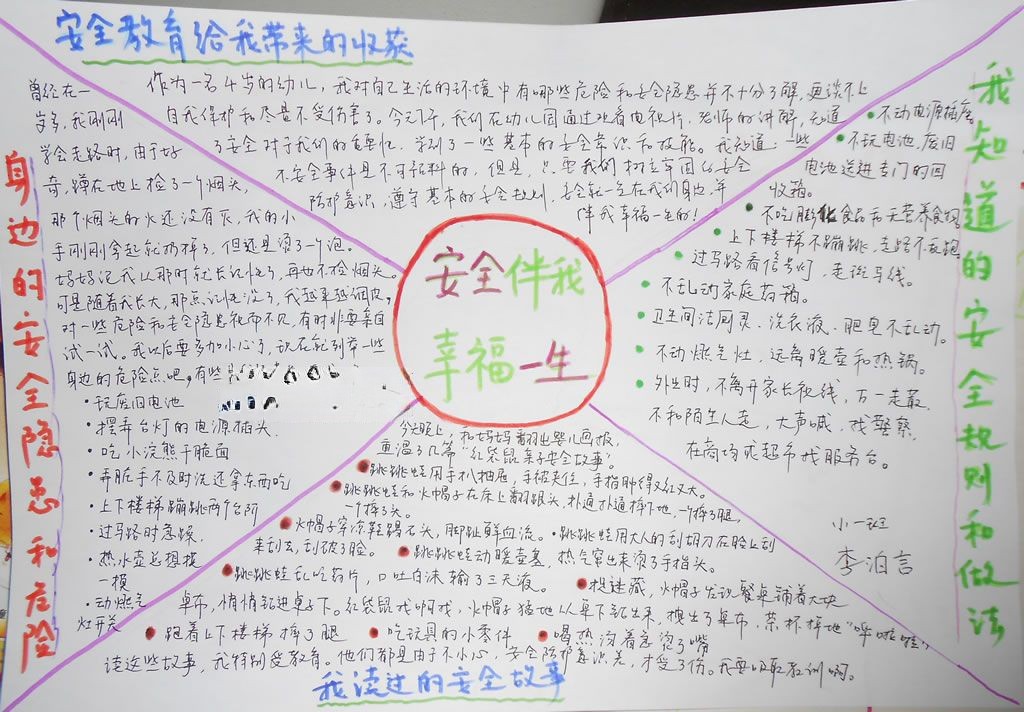 安全教育给我带来的收获
作为一名4岁的幼儿，我对自己生活的环境中有哪些危险和安全隐患并不十分了解，更谈不上
自我保护和尽量不受伤害了。今天下午，我们在幼儿园通过观看电视片，老师的讲解，知道
了安全对于我们的重要性，学到了一些基本的安全常识和技能。我知道：一些
不安全事件是不可预料的，但是，只要我们树立牢固的安全
防护意识，遵守基本的安全规则，安全就一定在我们身边，并
伴我幸福一生的！
身边的安全隐患和危险
曾经在一
岁多，我刚刚
学会走路时，由于好
奇，蹲在地上捡了一个烟头，
那个烟头的火还没有灭，我的小
手刚刚拿起就扔掉了，但还是烫了一个泡。
妈妈说我从那时就长记性了，再也不捡烟头。
可是随着我长大，那点记性没了，我越来越调皮，
对一些危险和安全隐患视而不见，有时非要亲自
试一试。我以后要多加小心了，现在就列举一些
身边的危险点吧，有些
•玩废旧电池
•摆弄台灯的电源插头.
•吃小浣熊干脆面
•弄脏手不及时洗还拿东西吃
•上下楼梯蹦跳两个台阶
•过马路时急躁.
•热水壶总想摸
一摸
•动燃气
灶开关
安全伴我
幸福一生
我知道的安全规则和做法
•不动电源插座.
•不玩电池,废旧
电池送进专门的回
收箱。
•不吃膨化食品和无营养食物
•上下楼梯不蹦跳，走路不乱跑
•过马路看信号灯，走斑马线。
•不乱动家庭药箱。
•卫生间洁厕灵、洗衣液、肥皂不乱动。
•不动燃气灶，远离暖壶和热锅。
•外出时，不离开家长视线，万一走散.
不和陌生人走，大声喊，找警察.
在商场或超市找服务台。
小一班
李泊言
今天晚上，和妈妈翻出婴儿画报，
重温了几篇“红袋鼠亲子安全故事”。
•跳跳蛙用手扒抽屉，手被夹住，手指肿得又红又大。
•跳跳蛙和火帽子在床上翻跟头，扑通扑通摔下地，一个摔了腿，
一个摔了头。
•火帽子穿凉鞋踢石头，脚趾鲜血流。•跳跳蛙用大人的刮胡刀在脸上刮
来刮去，刮破了脸。•跳跳蛙动暖壶塞，热气窜出来烫了手指头。
•跳跳蛙乱吃药片，口吐白沫输了三天液。•捉迷藏，火帽子发现餐桌铺着大块
桌布，悄悄钻进桌子下。红袋鼠找啊找，火帽子猛地从桌下钻出来，拽出了桌布，茶杯摔地“哗啦啦”
•跑着上下楼梯摔了腿 •吃玩具的小零件 •喝热汤着急烫了嘴
读这些故事，我特别受教育。他们都是由于不小心，安全防护意识差，才受了伤。我要吸取教训啊。
我读过的安全故事